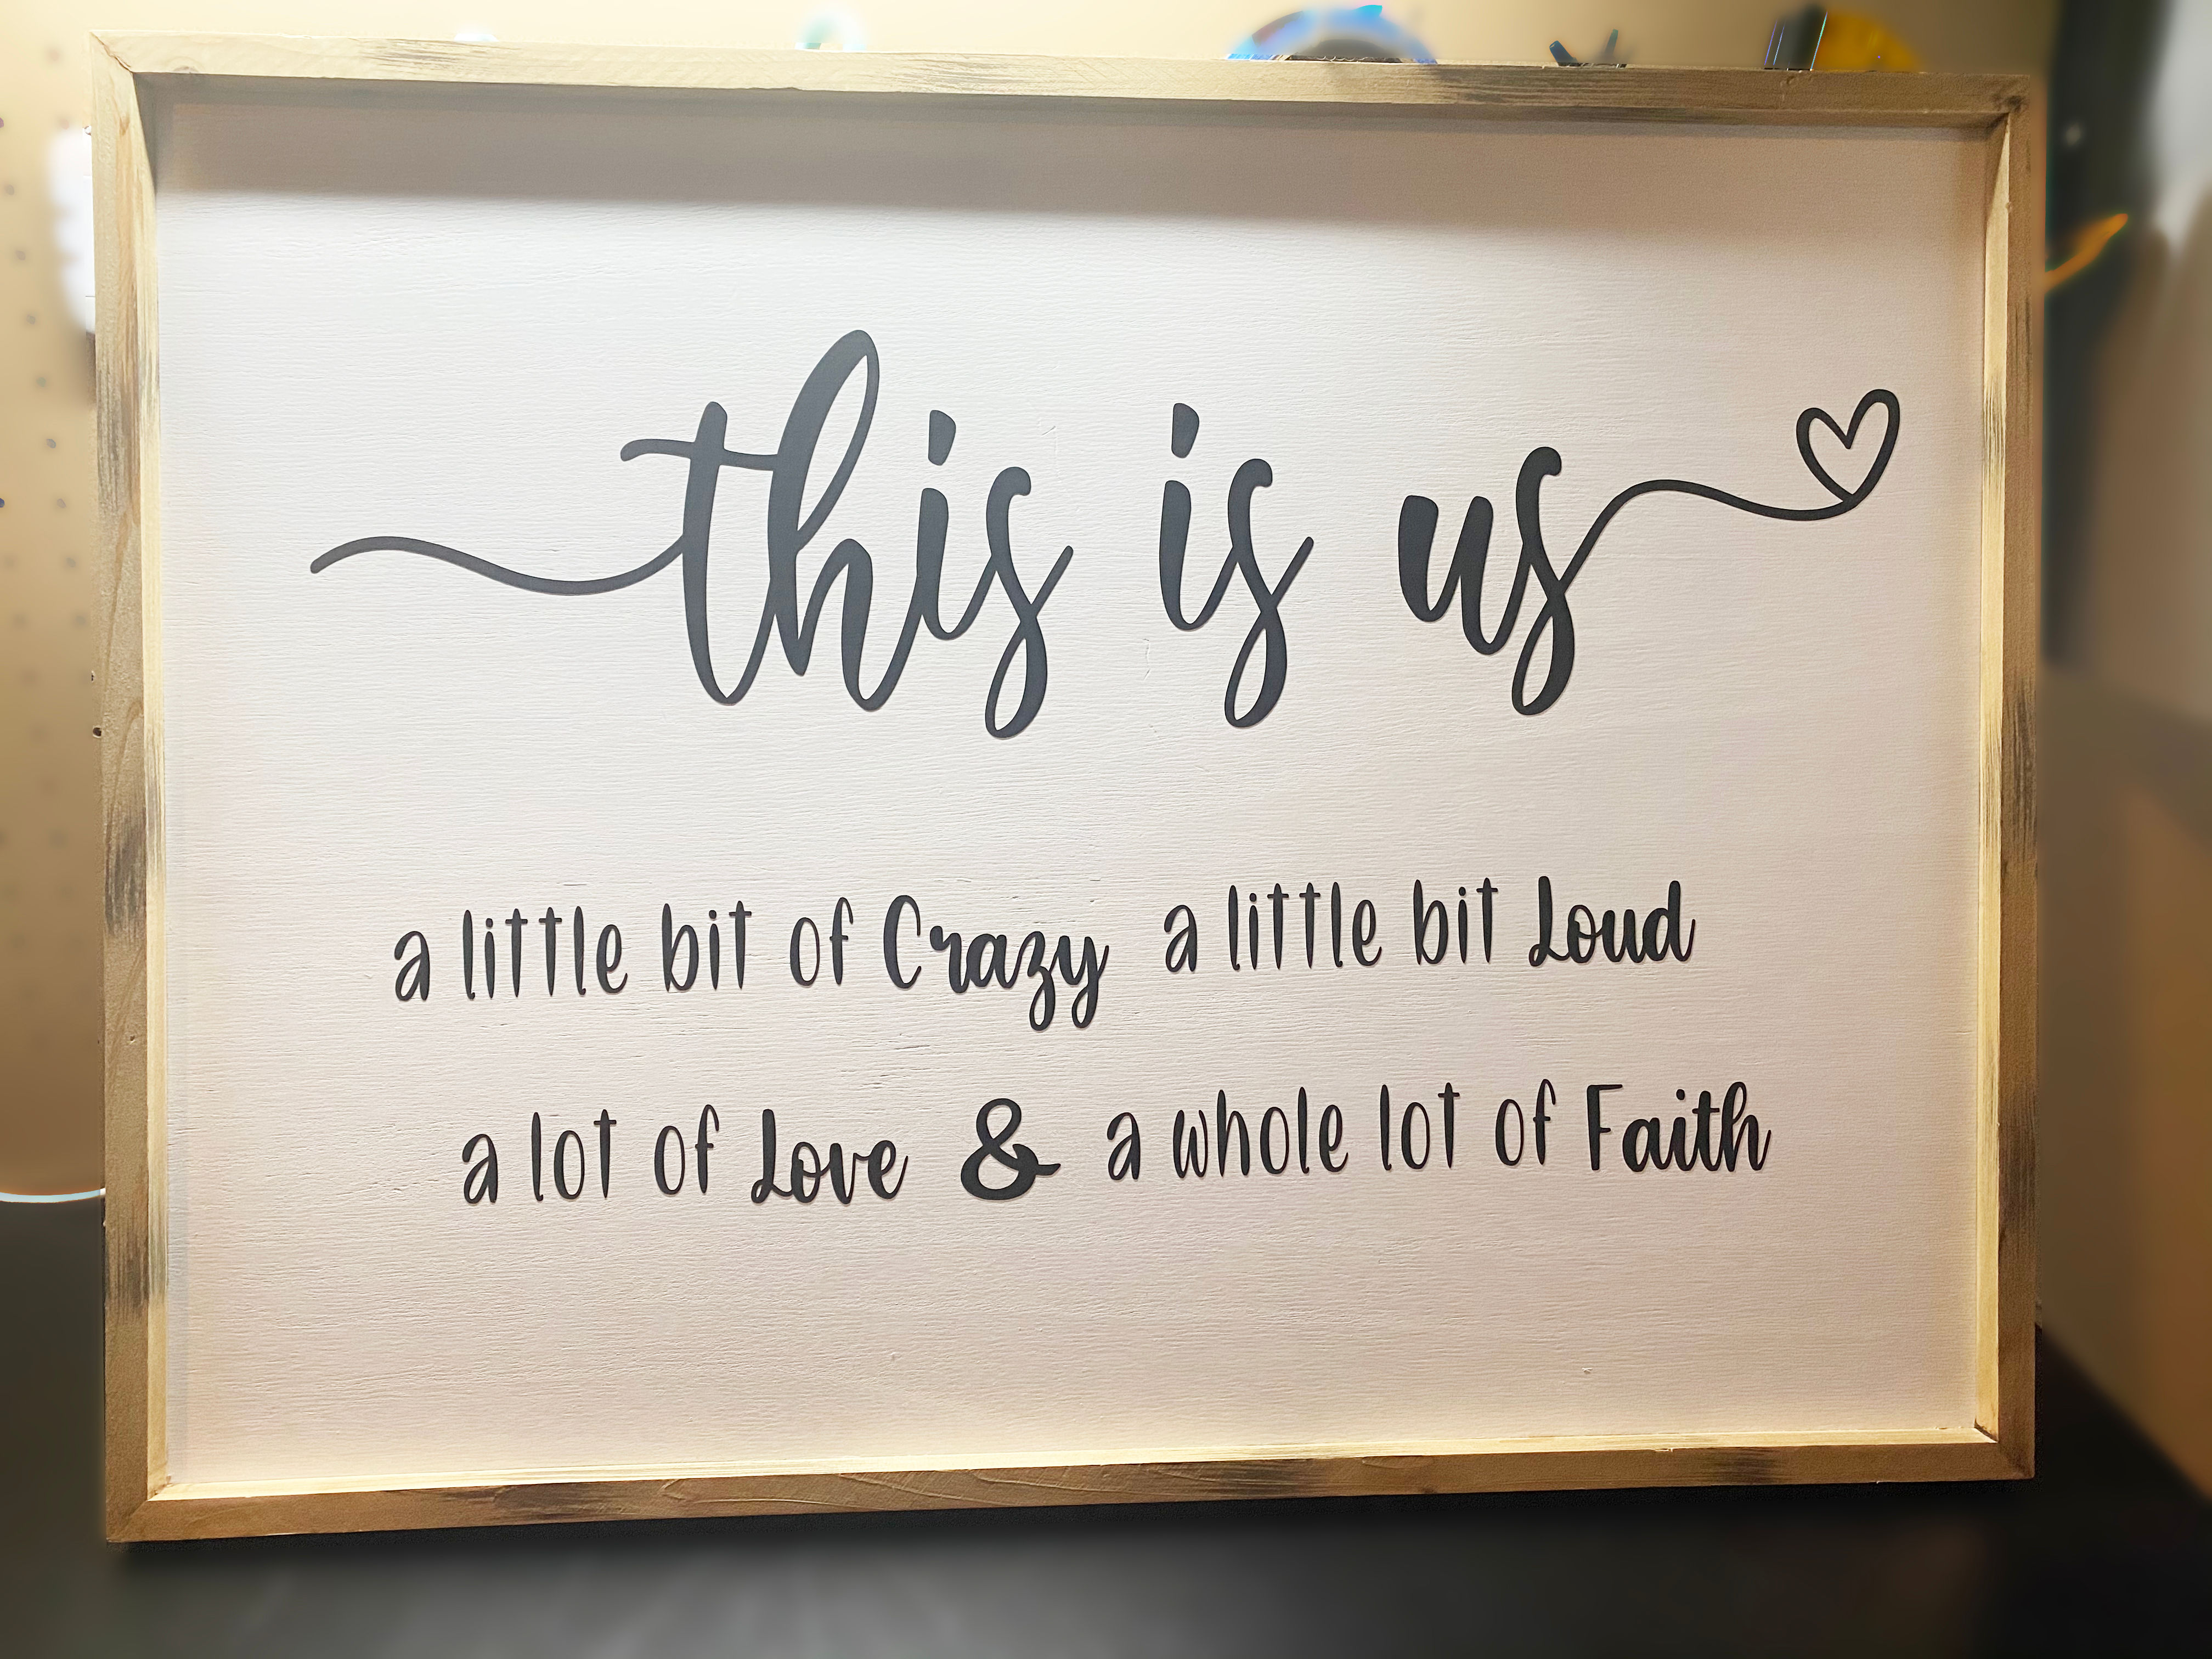 this is us
a little bit of Crazy a little bit Loud
a lot of Love & a whole lot of Faith